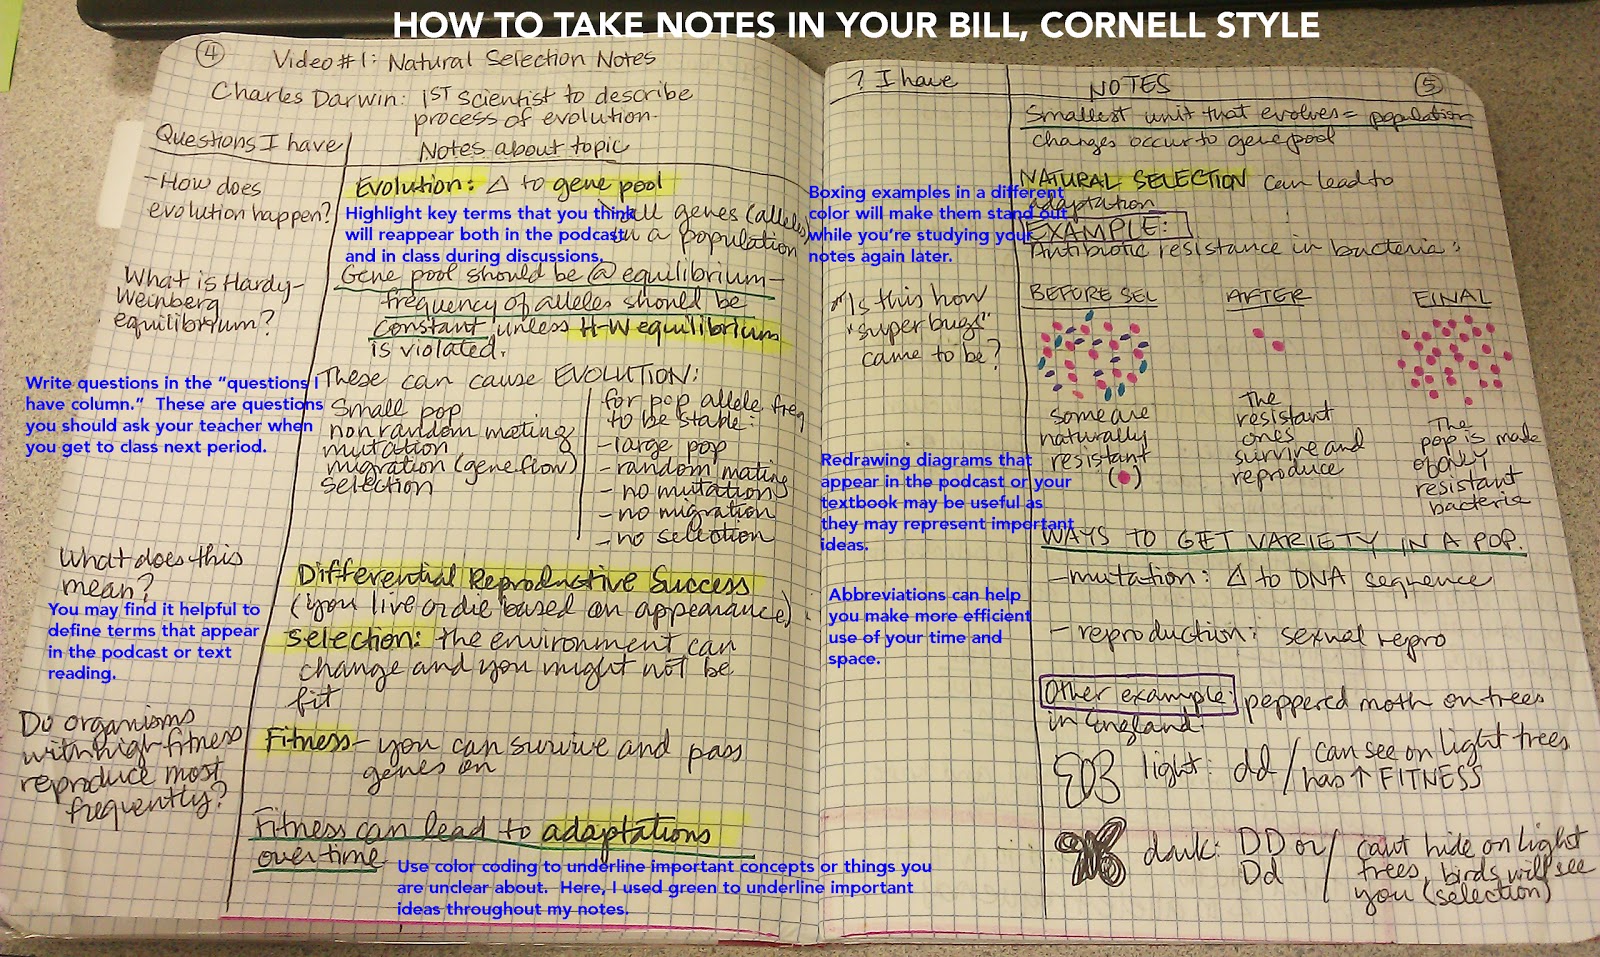 HOW TO TAKE NOTES IN YOUR BILL, CORNELL STYLE
4
Video #1: Natural Selection Notes
Charles Darwin: 1ST Scientist to describe
process of evolution.
Questions I have
Notes about topic
- How does
evolution happen?
Evolution: Δ to gene pool
all genes (alleles)
in a population
Highlight key terms that you think
will reappear both in the podcast
and in class during discussions.
What is Hardy-
Weinberg
equilibrium?
Gene pool should be @ equilibrium -
frequency of alleles should be
constant unless H-W equilibrium
is violated.
Write questions in the "questions I
have column." These are questions
you should ask your teacher when
you get to class next period.
These can cause EVOLUTION:
Small pop
non random mating
mutation
migration (gene flow)
selection
for pop allele freq
to be stable:
- large pop
- random mating
- no mutation
- no migration
- no selection
What does this
mean?
You may find it helpful to
define terms that appear
in the podcast or text
reading.
Differential Reproductive Success
(you live or die based on appearance)
selection: the environment can
change and you might not be
fit
Do organisms
with high fitness
reproduce most
frequently?
Fitness - you can survive and pass
genes on
Fitness can lead to adaptations
over time
Use color coding to underline important concepts or things you
are unclear about. Here, I used green to underline important
ideas throughout my notes.
? I have
NOTES
5
Smallest unit that evolves = population
changes occur to gene pool
NATURAL SELECTION can lead to
adaptation
Boxing examples in a different
color will make them stand out
while you're studying your
notes again later.
EXAMPLE:
Antibiotic resistance in bacteria:
* Is this how
"super bugs"
came to be?
BEFORE SEL
AFTER
FINAL
some are
naturally
resistant
( )
The
resistant
ones
survive and
reproduce
The
pop is made
of only
resistant
bacteria
Redrawing diagrams that
appear in the podcast or your
textbook may be useful as
they may represent important
ideas.
WAYS TO GET VARIETY IN A POP.
- mutation: Δ to DNA sequence
- reproduction: sexual repro
Abbreviations can help
you make more efficient
use of your time and
space.
Other example: peppered moth on trees
in England.
light: dd / can see on light trees
has ↑ FITNESS
dark: DD or / can't hide on light
Dd trees, birds will see
you (selection)